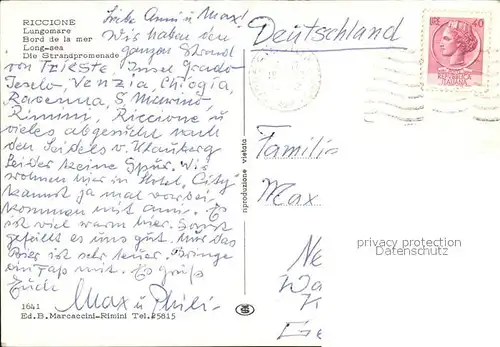 RICCIONE
Lungomare
Bord de la mer
Long-sea
Die Strandpromenade
Liebe Anni u Max!
Wir haben den
ganzen Strand
von TRIESTE, Insel Grado
Jesolo, Venezia, Chiogia,
Ravenna, S Marino,
Rimini, Riccione u
vieles abgesucht nach
den Seidels v. Klauberg
Leider keine Spur. Wir
wohnen hier in Hotel "City"
kannst ja mal vorbei
kommen mit Anni. Es
ist viel warm hier. Sonst
gefällt es uns gut. Nur das
Bier ist sehr teuer. Bringe
ein Faß mit. Es grüß
Euch
Max u Phili-
1641
Ed. B. Marcaccini-Rimini Tel. 25815
riproduzione vietata
Deutschland
LIRE 40
REPUBBLICA
ITALIANA
Familie
Max
Ne
Wa
K
Ge
privacy protection
Datenschutz